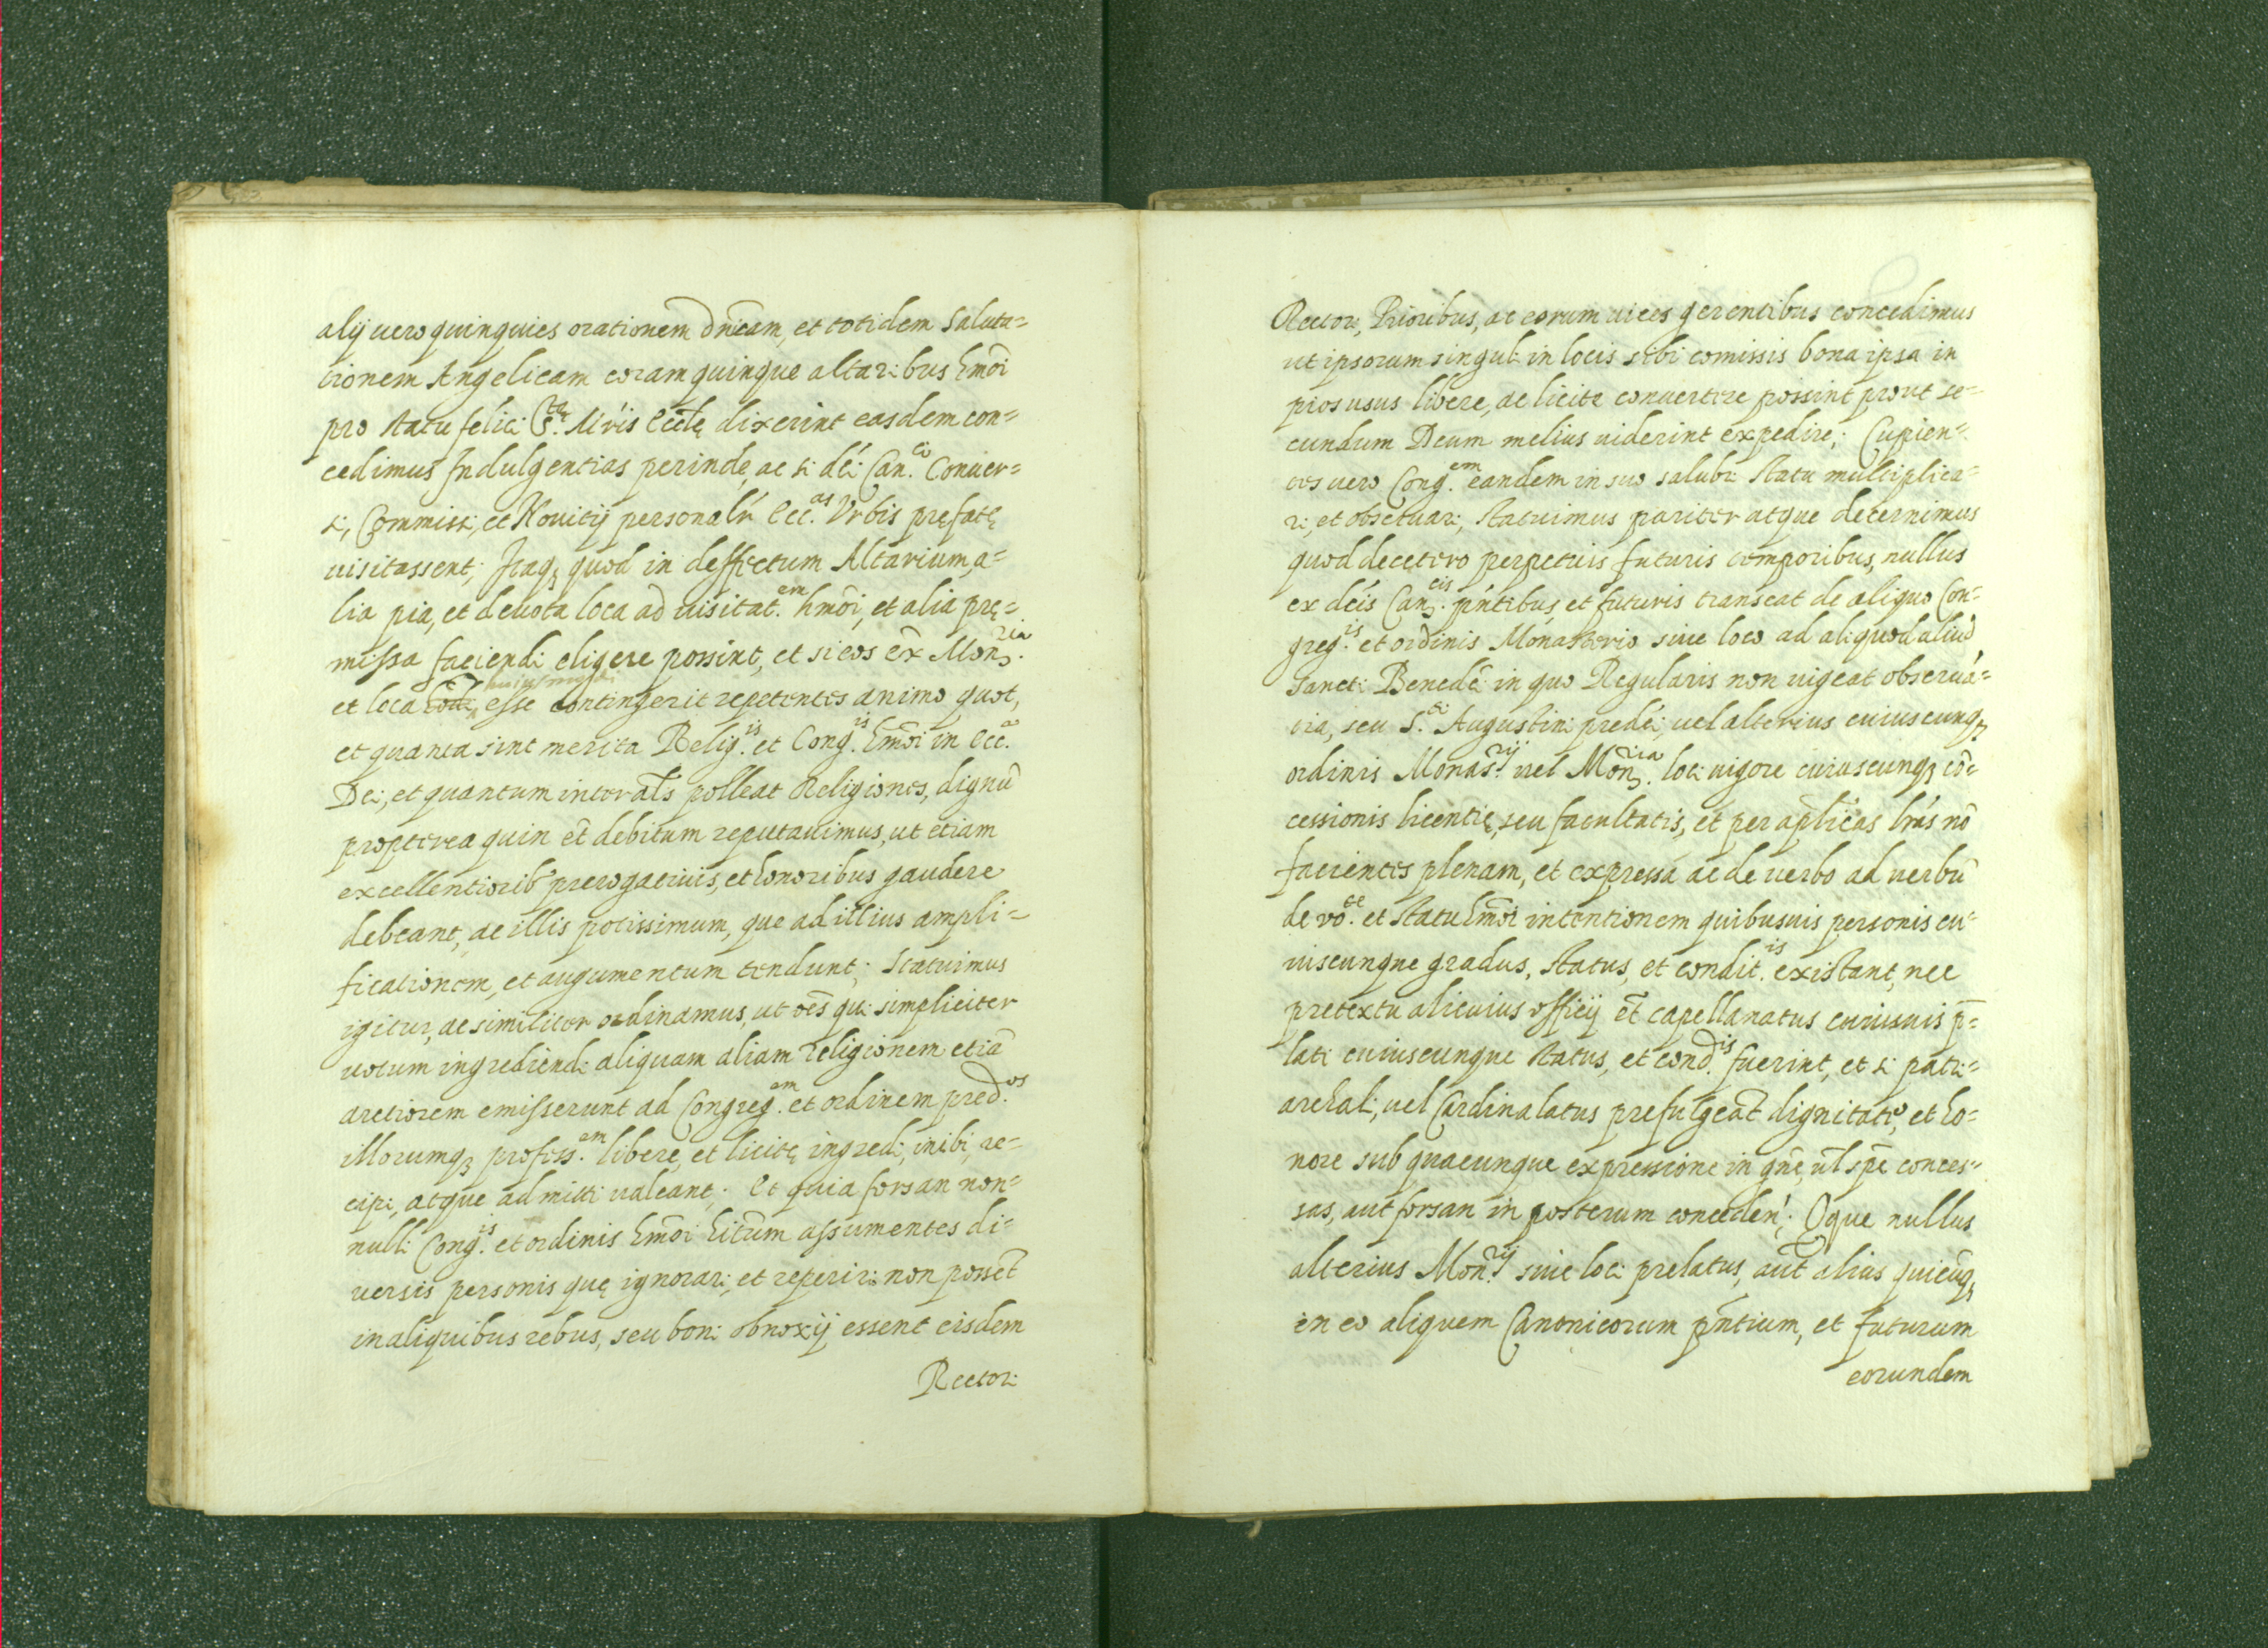 alij uero quinquies orationem dnicam, et totidem Saluta=
tionem Angelicam coram quinque altaribus hmoi
pro statu felici S.tę Mris Eccle dixerint easdem con=
cedimus Indulgentias perinde, ac si dci Can.ci Conuer=
si, Commissi, et Nouitij personalr Ecc.as Vrbis pręfatę
uisitassent; Itaq; quod in deffectum Altarium, a=
lia pia, et deuota loca ad uisitat.em hmoi, et alia prę=
missa faciendi eligere possint, et si eos ex Mon.ria
et loca huiusmodi esse contingerit repetentes animo quot,
et quanta sint merita Relig.is et Cong.is hmoi in Ecc.a
Dei, et quantum inter als polleat Religiones, dignũ
propterea quin et debitum reputauimus, ut etiam
excellentiorib' prerogatiuis, et honoribus gaudere
debeant, ac illis potissimum, que ad illius ampli=
ficationem, et augumentum tendunt; Statuimus
igitur, ac similiter ordinamus, ut oes qui simpliciter
uotum ingrediendi aliquam aliam religionem etiã
arctiorem emisserunt ad Congreg.em et ordinem pred.os
illorumq; profess.em libere, et licitę ingredi, inibi, re=
cipi, atque admitti ualeant; Et quia forsan non=
nulli Cong.is et ordinis hmoi hitum assumentes di=
uersis personis quę ignorari, et reperiri non possẽt
in aliquibus rebus, seu boni obnoxij essent eisdem
Rectori
Rectori, Prioribus, ac eorum uices gerentibus concedimus
ut ipsorum singuli in locis sibi comissis bona ipsa in
pios usus libere, ac licite conuertere possint prout se=
cundum Deum melius uiderint expedire; Cupien=
tes uero Cong.em eandem in suo salubri statu multiplica=
ri, et obseruari, statuimus pariter atque decernimus
quod decetero perpetuis futuris temporibus, nullus
ex dcis Can.cis pntibus et futuris transeat de aliquo Con=
greg.is et ordinis Monasterio siue loco ad aliquod aliud
Sancti Benedci in quo Regularis non uigeat obserua=
tia, seu S.ti Augustini predci, uel alterius cuiuscunq;
ordinis Monas.rij uel Mon.ria loci uigore cuiuscunq; cõ=
cessionis licentię, seu facultatis, et per aplicas lras nõ
facientes plenam, et expressã ac de uerbo ad uerbũ
de vo.te et statu hmoi intentionem quibusuis personis cu=
iuscunque gradus, status, et condit.is existant, nec
pretextu alicuius officij et capellanatus cuiusuis p=
lati cuiuscunque status, et cond.is fuerint, et si patri=
archali, uel Cardinalatus prefulgeat dignitate, et ho=
nore sub quacunque expressione in gne, ul spe conces=
sas, aut forsan in posterum conceden; Qque nullus
alterius Mon.rij siue loci prelatus, aut alius quicuq;
in eo aliquem Canonicorum pntium, et futurum
eorundem